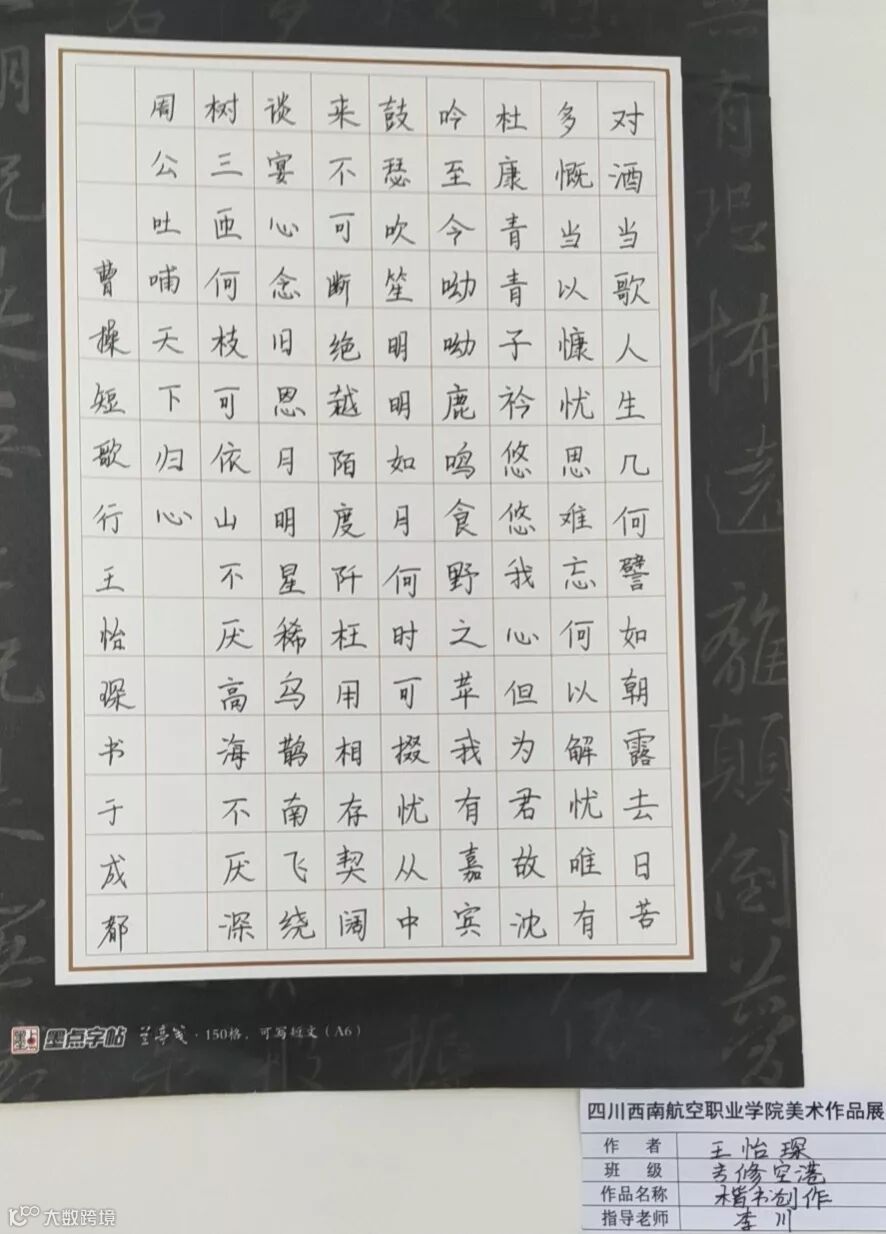 对酒当歌人生几何譬如朝露去日苦
多慨当以慷忧思难忘何以解忧唯有
杜康青青子衿悠悠我心但为君故沈
吟至今呦呦鹿鸣食野之苹我有嘉宾
鼓瑟吹笙明明如月何时可掇忧从中
来不可断绝越陌度阡枉用相存契阔
谈宴心念旧恩月明星稀乌鹊南飞绕
树三匝何枝可依山不厌高海不厌深
周公吐哺天下归心
曹操短歌行王怡琛书于成都
墨点字帖 兰亭笺·150格，可写短文（A6）
四川西南航空职业学院美术作品展
作者 王怡琛
班级 专修空港
作品名称 楷书创作
指导老师 李川
大数跨境